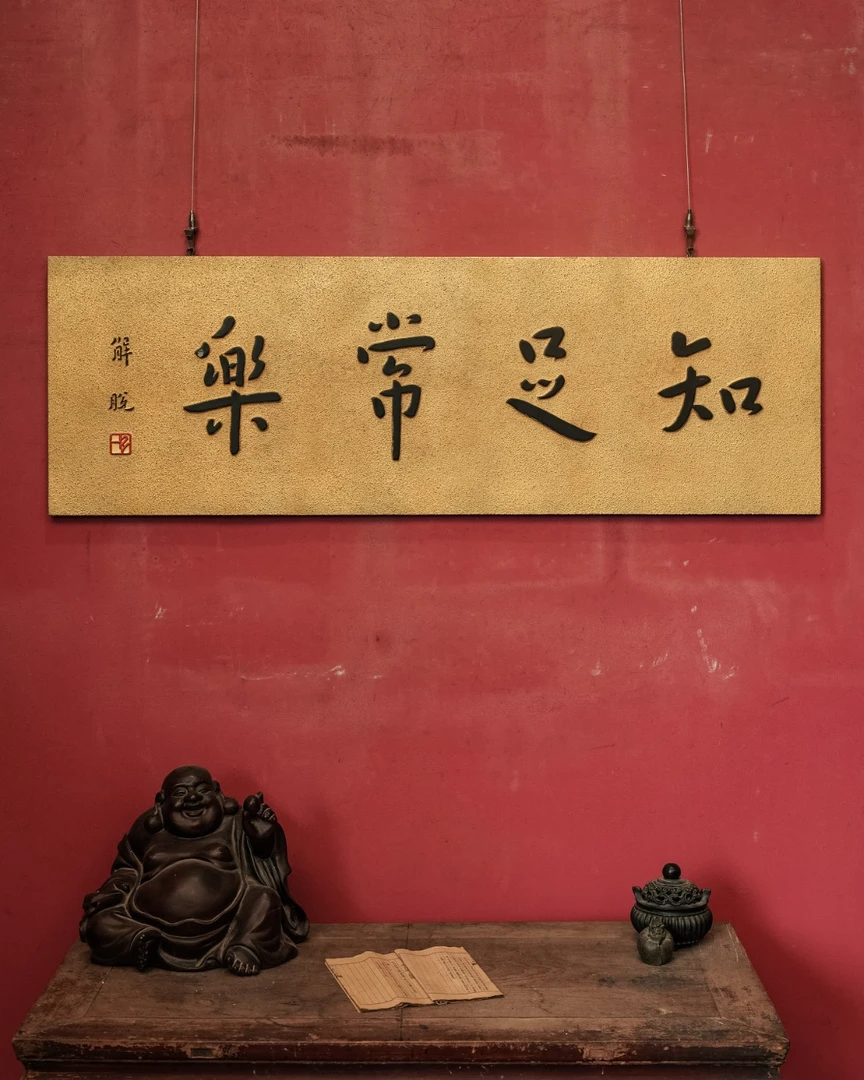 知足常樂
解脫